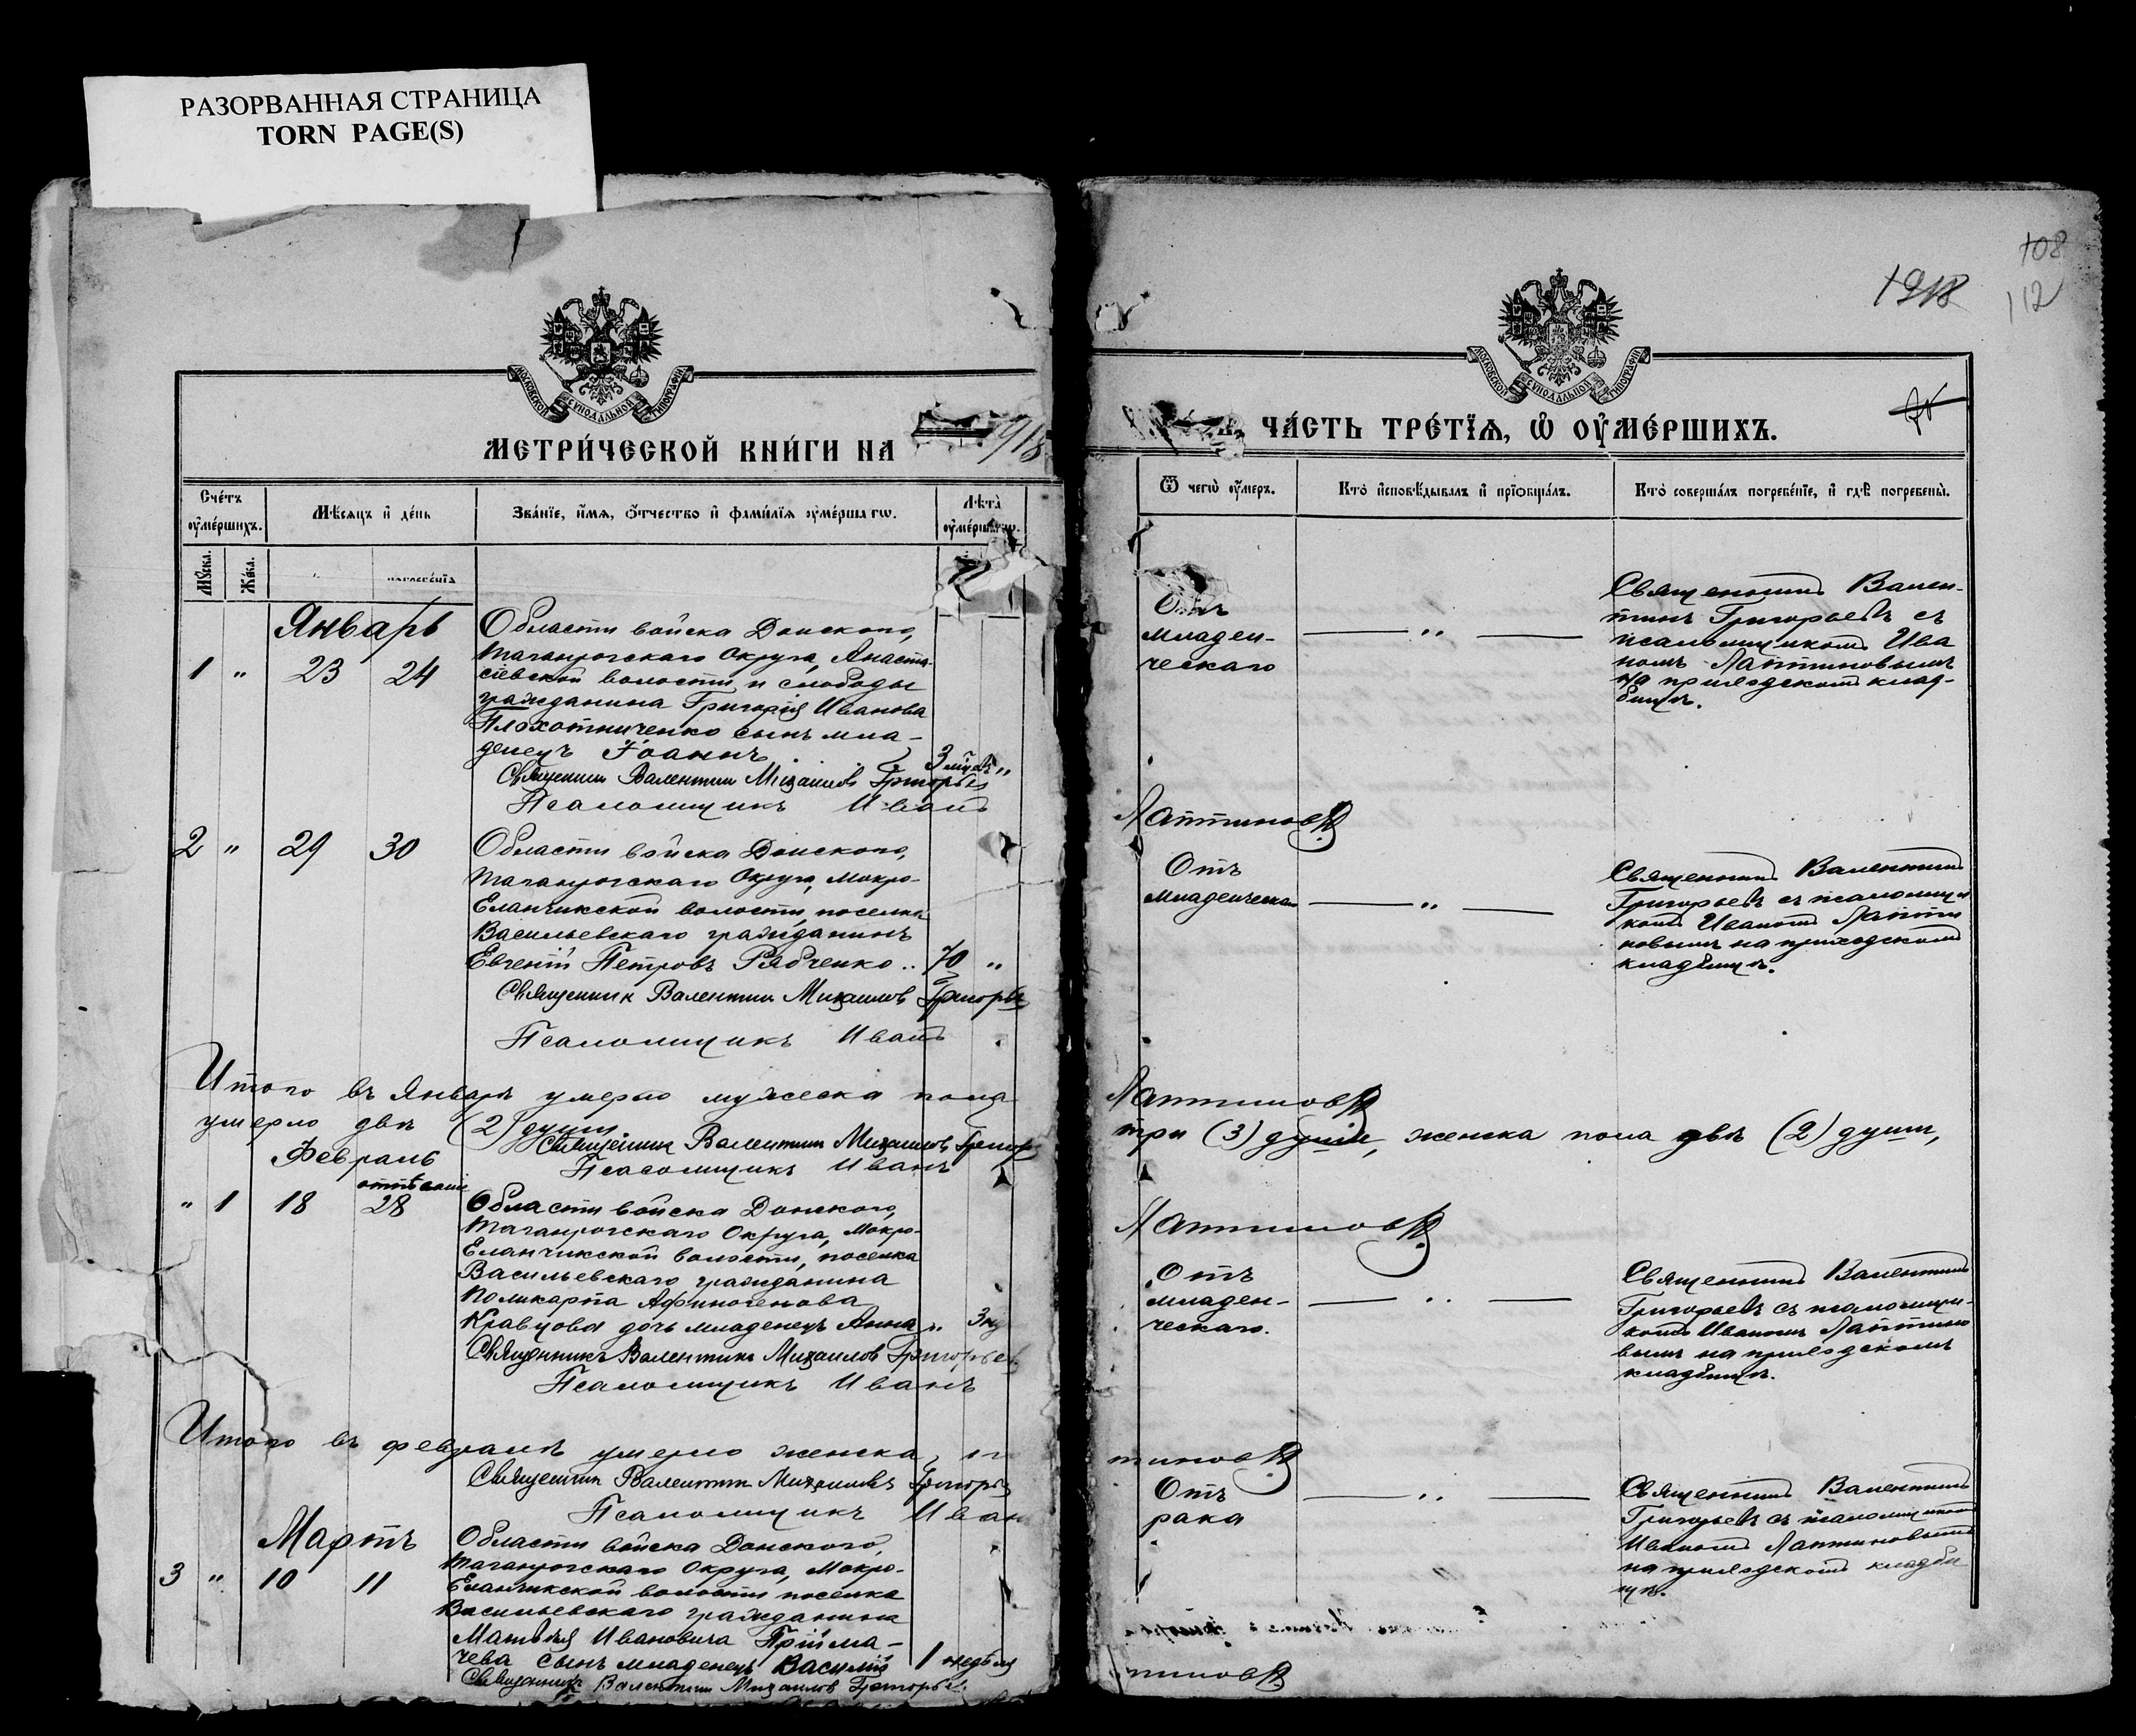 РАЗОРВАННАЯ СТРАНИЦА
TORN PAGE(S)
МОСКОВСКОЙ СѴНОДАЛЬНОЙ ТИПОГРАФІИ
МЕТРИ́ЧЕСКОЙ КНИ́ГИ НА 1918
Сче́тъ ᲂу҆ме́ршихъ.
Мѣ́сяцъ и҆ де́нь
Зва́нїе, и҆́мѧ, ѻ҆́тчество и҆ фами́лїѧ ᲂу҆ме́ршагѡ.
Лѣ́та ᲂу҆ме́ршагѡ.
Мꙋ́жеска.
Же́нска.
погребе́нїѧ
Январь
1 " 23 24
Области войска Донского,
Таганрогскаго Округа, Анаста-
сіевской волости и слободы
гражданина Григорія Иванова
Плохотниченко сынъ мла-
денецъ Іоаннъ
3 мѣс. "
Священник Валентин Михаилов Григорьев
Псаломщикъ Иванъ
2 " 29 30
Области войска Донского,
Таганрогскаго Округа, Мокро-
Еланчикской волости, поселка
Васильевскаго гражданинъ
Евгеній Петровъ Рябченко .. 70 "
Священник Валентин Михаилов Григорьев
Псаломщикъ Иванъ
Итого въ Январѣ умерло мужеска пола
умерло двѣ (2) души
Священник Валентин Михаилов Григорьев
Псаломщикъ Иванъ
Февраль
отпѣваніе
" 1 18 28
Области войска Донского,
Таганрогскаго Округа, Мокро-
Еланчикской волости, поселка
Васильевскаго гражданина
Поликарпа Афиногенова
Кравцова дочь младенецъ Анна "
Священникъ Валентинъ Михаилов Григорьев
Псаломщикъ Иванъ
Итого въ февралѣ умерло женска
Священник Валентин Михаилов Григорьев
Псаломщикъ Иван
Мартъ
3 " 10 11
Области войска Донского,
Таганрогскаго Округа, Мокро-
Еланчикской волости поселка
Васильевскаго гражданина
Матвѣя Ивановича Прійма-
чева сынъ младенецъ Василій 1 недѣля
Священникъ Валентин Михаилов Григорьев
108
112
1918
МОСКОВСКОЙ СѴНОДАЛЬНОЙ ТИПОГРАФІИ
ЧА́СТЬ ТРЕ́ТЇѦ, Ѡ҆ ОУ҆МЕ́РШИХЪ.
Ѿ чегѡ̀ ᲂу҆́меръ.
Кто̀ и҆сповѣ́дывалъ и҆ прїѻбща́лъ.
Кто̀ соверша́лъ погребе́нїе, и҆ гдѣ̀ погребены̀.
Отъ
младен-
ческаго
— " —
Священникъ Вален-
тинъ Григорьевъ съ
псаломщикомъ Ива
номъ Лаптиновымъ
на приходскомъ клад-
бищѣ.
Лаптиновъ
Отъ
младенческа
— " —
Священникъ Валентинъ
Григорьевъ съ псаломщи
комъ Иваномъ Лапти
новымъ на приходскомъ
кладбищѣ.
Лаптиновъ
три (3) души, женска пола двѣ (2) души,
Лаптиновъ
Отъ
младен-
ческаго.
— " —
Священникъ Валентинъ
Григорьевъ съ псаломщи-
комъ Иваномъ Лаптино
вымъ на приходскомъ
кладбищѣ.
тиновъ
Отъ
рака
— " —
Священникъ Валентинъ
Григорьевъ съ псаломщикомъ
Иваномъ Лаптиновымъ
на приходскомъ кладби
щѣ.
тиновъ